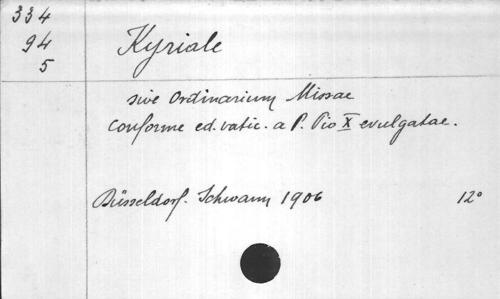 334
94
5
Kyriale
sive Ordinarium Missae
conforme ed. vatic. a P. Pio X evulgatae.
Düsseldorf. Schwann 1906 12°